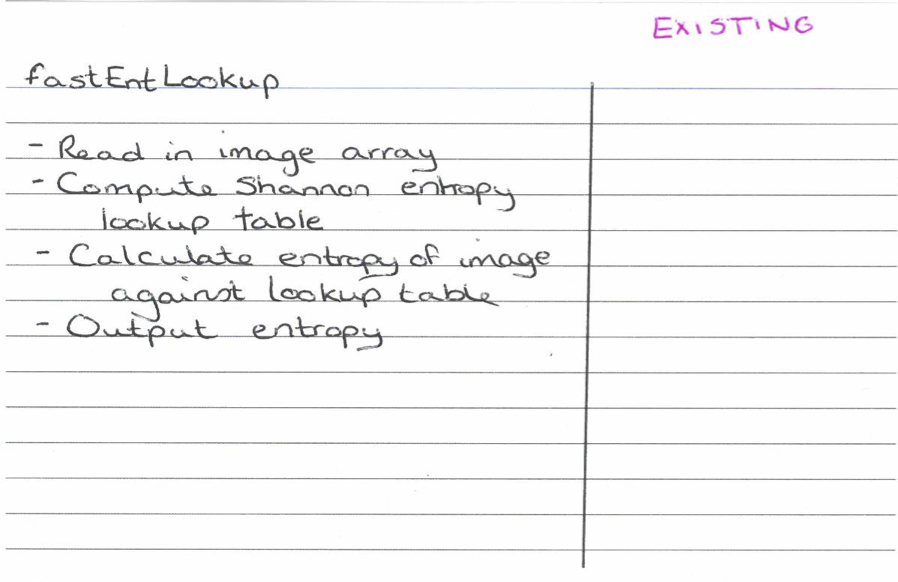 EXISTING
fastEntLookup
- Read in image array
- Compute Shannon entropy
lookup table
- Calculate entropy of image
against lookup table
- Output entropy